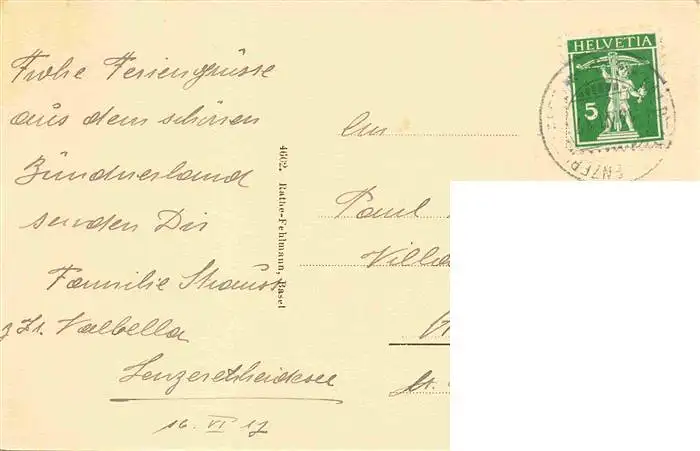 Frohe Feriengrüsse
aus dem schönen
Bündnerland
senden Dir
Familie Strauss
z. Zt. Valbella
Lenzerheidesee
16. VI 17
4602. Rathe-Fehlmann, Basel
HELVETIA
5
Paul